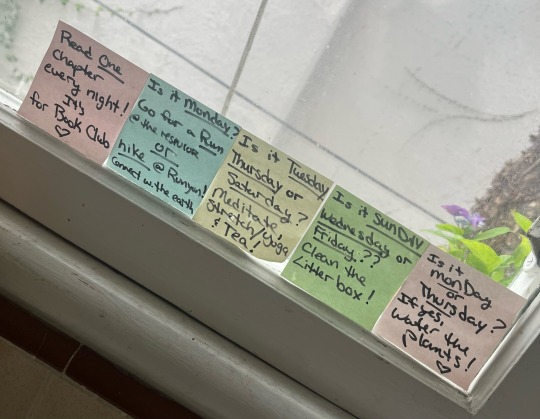 Read One
Chapter
every night!
It's
for Book Club
♡
Is it Monday?
Go for a Run
@ the reservoir
or
hike @ Runyon!
Connect w. the earth
Is it Tuesday
Thursday or
Saturday?
Meditate
Stretch/Yoga
& Tea!
Is it SUNDAY
Wednesday or
Friday??
Clean the
Litter box!
Is it
monDay
or
Thursday?
If yes,
Water the
plants!
♡